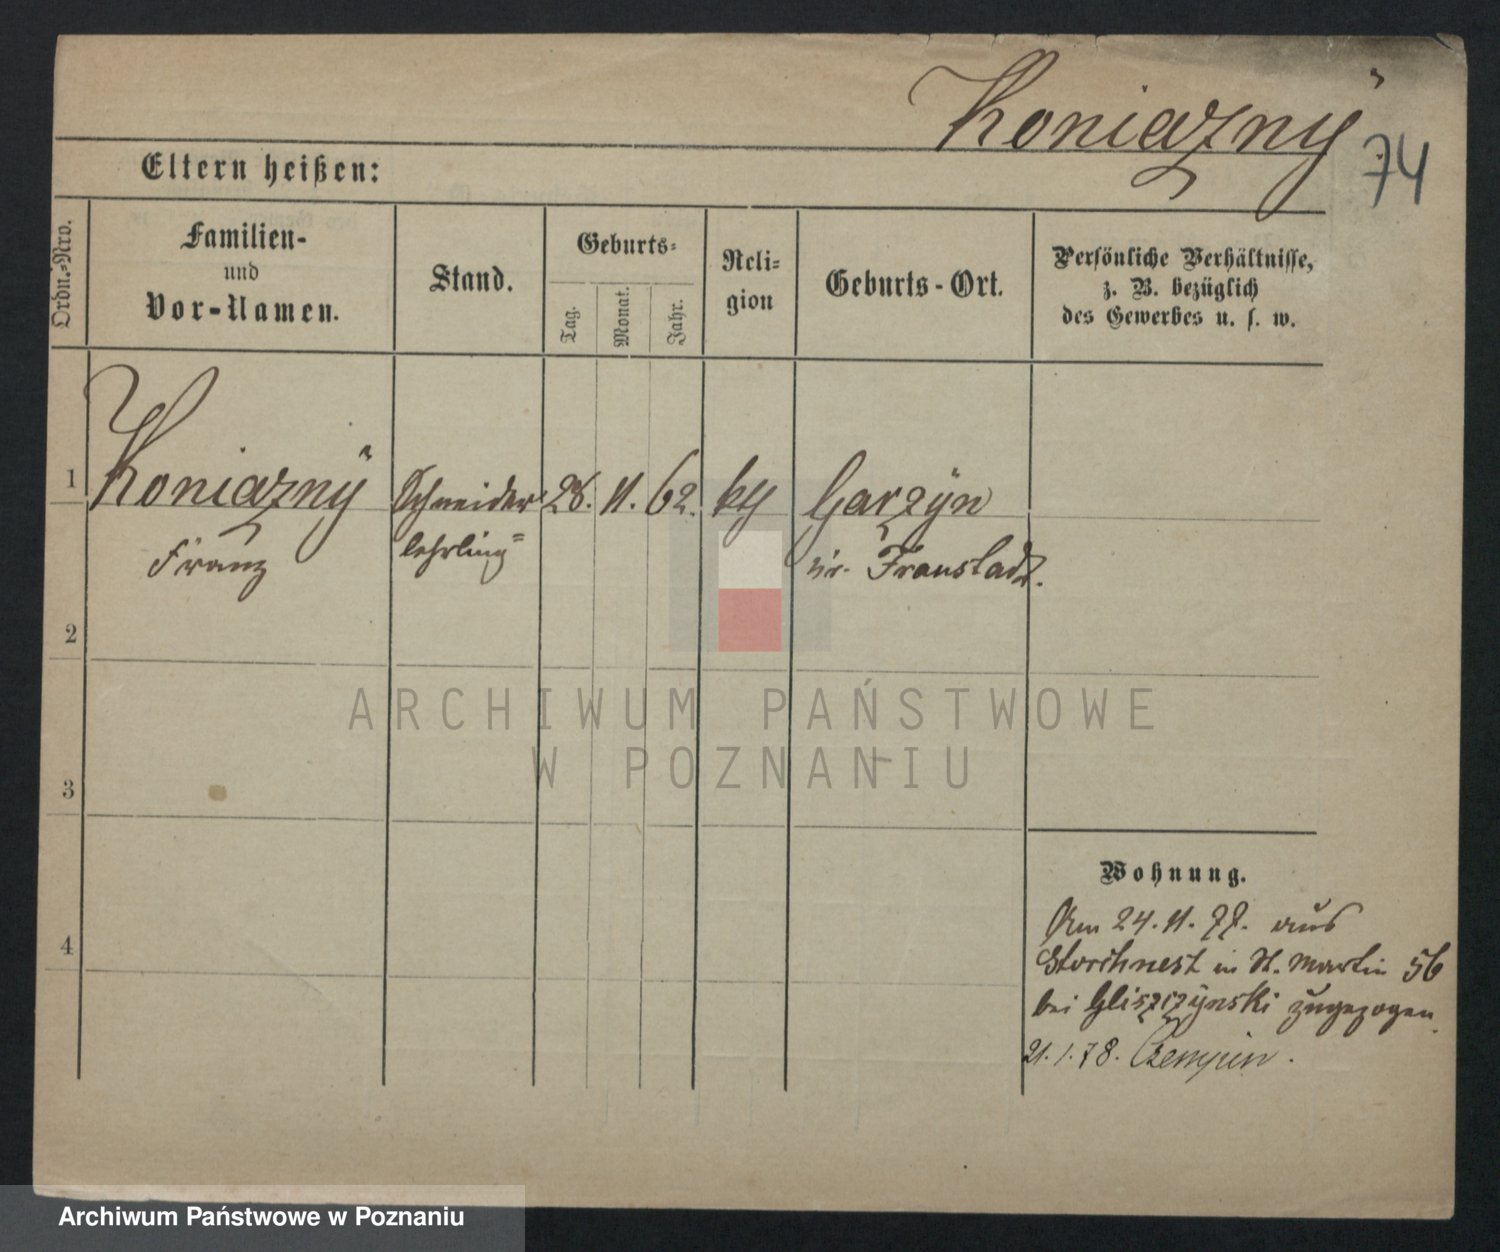 Koniazny
74
Eltern heißen:
Ordn.-Nro.
Familien-
und
Vor-Namen.
Stand.
Geburts-
Tag.
Monat.
Jahr.
Reli-
gion
Geburts-Ort.
Persönliche Verhältnisse,
z. B. bezüglich
des Gewerbes u. s. w.
1
Koniazny
Franz
Schneider
lehrling
28. 11. 62.
kth
Garzyn
Kr. Fraustadt.
2
3
4
Wohnung.
Am 24. 11. 77. aus
Storchnest in St. Martin 56
bei Gliszczynski zugezogen
21. 1. 78. Czempin.
ARCHIWUM PAŃSTWOWE
W POZNANIU
Archiwum Państwowe w Poznaniu